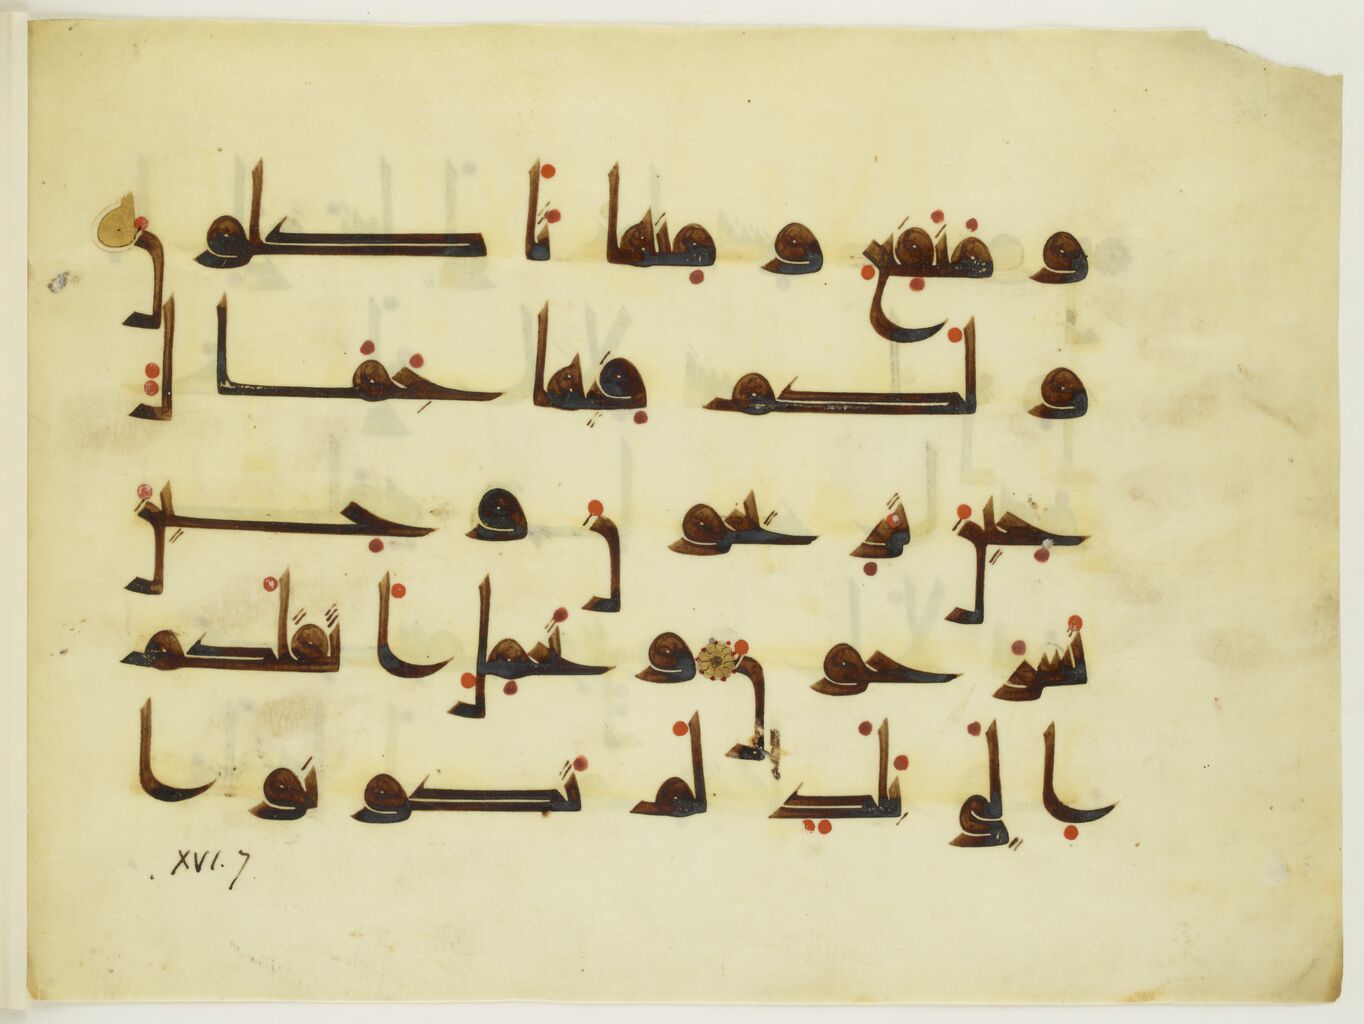 و منفع و منها تاكلون
و لكم فيها جمال
حين تريحون و حين
تسرحون و تحمل اثقلكم
الى بلد لم تكونوا
XVI. 7